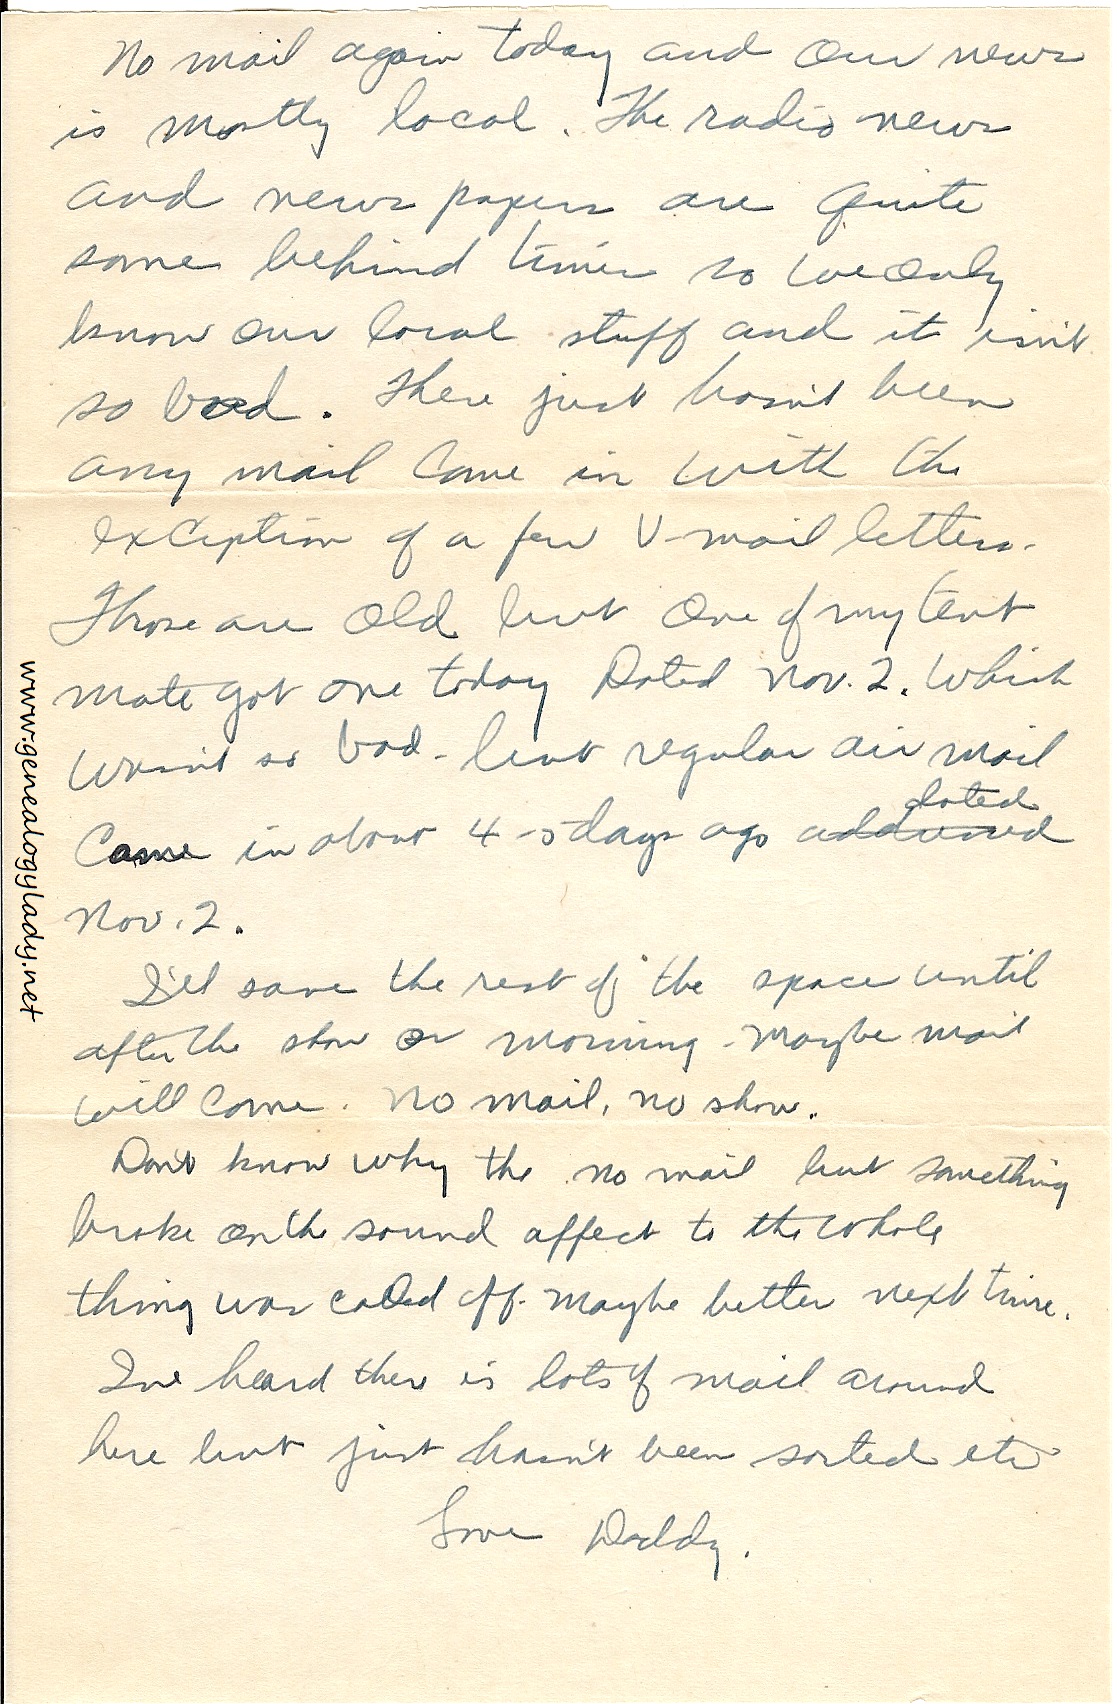 No mail again today and our news
is mostly local. The radio news
and news papers are quite
some behind times so we only
know our local stuff and it isn't
so bad. There just hasn't been
any mail come in with the
exception of a few V-mail letters.
Those are old but one of my tent
mate got one today Dated Nov. 2. Which
wasn't so bad - but regular air mail
dated
Came in about 4-5 days ago addressed
Nov. 2.
I'll save the rest of the space until
after the show or morning - maybe mail
will come. No mail, no show.
Don't know why the no mail but something
broke on the sound affect to the whole
thing was called off. Maybe better next time.
I've heard there is lots of mail around
here but just hasn't been sorted etc
Love Daddy.
www.genealogylady.net